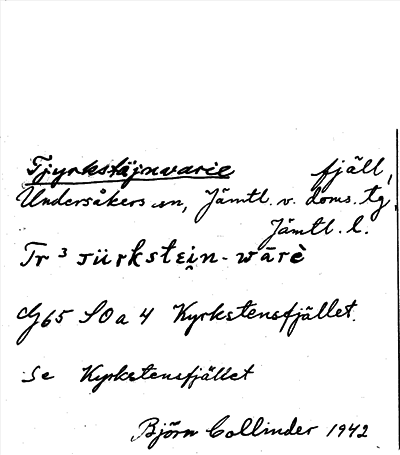 Tjyrkstäjnvarie fjäll,
Undersåkers sn, Jämtl. v. doms. tg
Jämtl. l.
Tr ³ türkstei̯n-wārè
G65 SO a 4 Kyrkstensfjället.
Se Kyrkstensfjället
Björn Collinder 1942